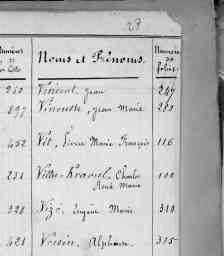 28
Numéros
Noms et Prénoms.
Numéros
folios
210 Vincent, Jean 267
897 Vincotte, Jean Marie 280
452 Vit, Pierre Marie François 116
231 Charles 100
René Marie
328 Vizo, Eugène Marie 310
421 Voisin, Alphonse 315